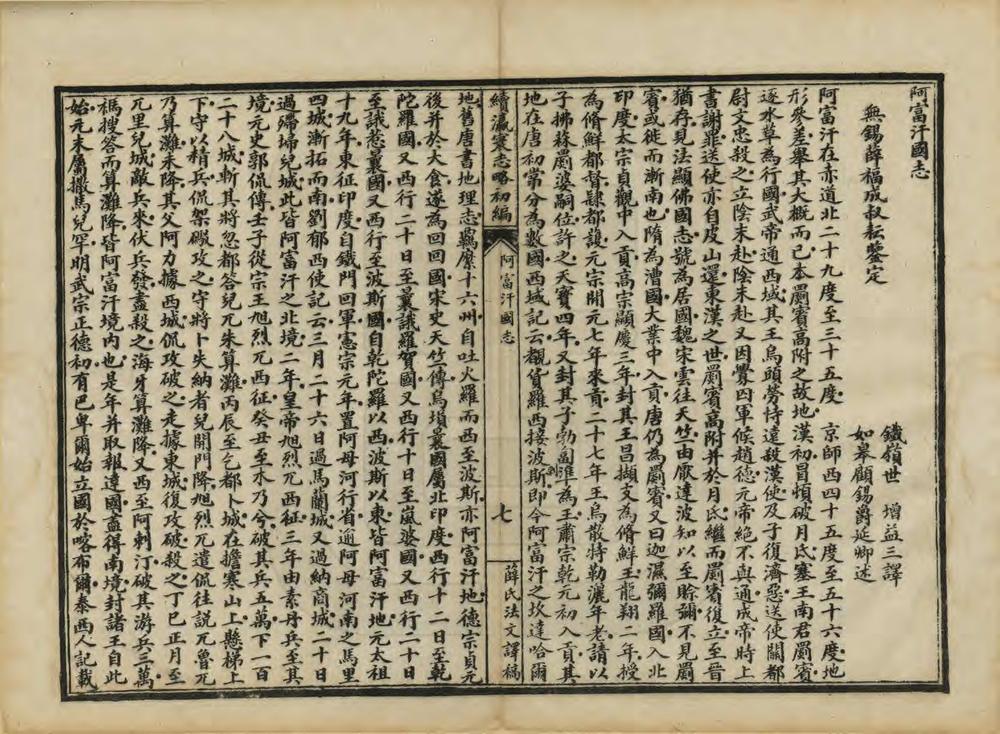 阿富汗國志
無錫薛福成叔耘鑒定
鐵嶺世　增益三譯
如皋顧錫爵延卿述
阿富汗在赤道北二十九度至三十五度　京師西四十五度至五十六度地
形參差舉其大概而已本罽賓高附之故地漢初冒頓破月氏塞王南君罽賓
逐水草為行國武帝通西域其王烏頭勞恃遠殺漢使及子復濟惡送使關都
尉文忠殺之立陰末赴陰末赴又因釁囚軍候趙德元帝絕不與通成帝時上
書謝罪送使亦自皮山還東漢之世罽賓高附并於月氏繼而罽賓復立至晉
猶存見法顯佛國志號為居國魏宋雲往天竺由厭達波知以至賒彌不見罽
賓或徙而漸南也隋為漕國大業中入貢唐仍為罽賓又曰迦濕彌羅國入北
印度太宗貞觀中入貢高宗顯慶三年封其王曷擷支為脩鮮王龍翔二年授
為脩鮮都督隸都護元宗開元七年來貢二十七年王烏散特勒灑年老請以
子拂菻罽婆嗣位許之天寶四年又封其子勃匐準為王肅宗乾元初入貢其
地在唐初常分為數國西域記云覩貨羅西接波斯即今阿富汗之坎達哈爾
續瀛寰志略初編
阿富汗國志
七
薛氏法文譯稿
地舊唐書地理志羈縻十六州自吐火羅而西至波斯亦阿富汗地德宗貞元
後并於大食遂為回回國宋史天竺傳烏塤曩國屬北印度西行十二日至乾
陀羅國又西行二十日至曩誐羅賀國又西行十日至嵐婆國又西行二十日
至誐惹曩國又西行至波斯國自乾陀羅以西波斯以東皆阿富汗地元太祖
十九年東征印度自鐵門回軍憲宗元年置阿母河行省逎阿母河南之馬里
四城漸拓而南劉郁西使記云三月二十六日過馬蘭城又過納商城二十日
過殢埽兒城此皆阿富汗之北境二年皇帝旭烈兀西征三年由素丹兵至其
境元史郭侃傳壬子從宗王旭烈兀西征癸丑至木乃兮破其兵五萬下一百
二十八城斬其將忽都答兒兀朱算灘丙辰至乞都卜城在擔寒山上懸梯上
下守以精兵侃架礮攻之守將卜失納者兒開門降旭烈兀遣侃往說兀魯兀
乃算灘未降其父阿力據西城侃攻破之走據東城復攻破殺之丁巳正月至
兀里兒城敵兵來伏兵發盡殺之海牙算灘降又西至阿剌汀破其游兵三萬
禡搜答而算灘降皆阿富汗境內也是年并取報達國盡得南境封諸王自此
始元末屬撒馬兒罕明武宗正德初有巴卑爾始立國於喀布爾泰西人記載